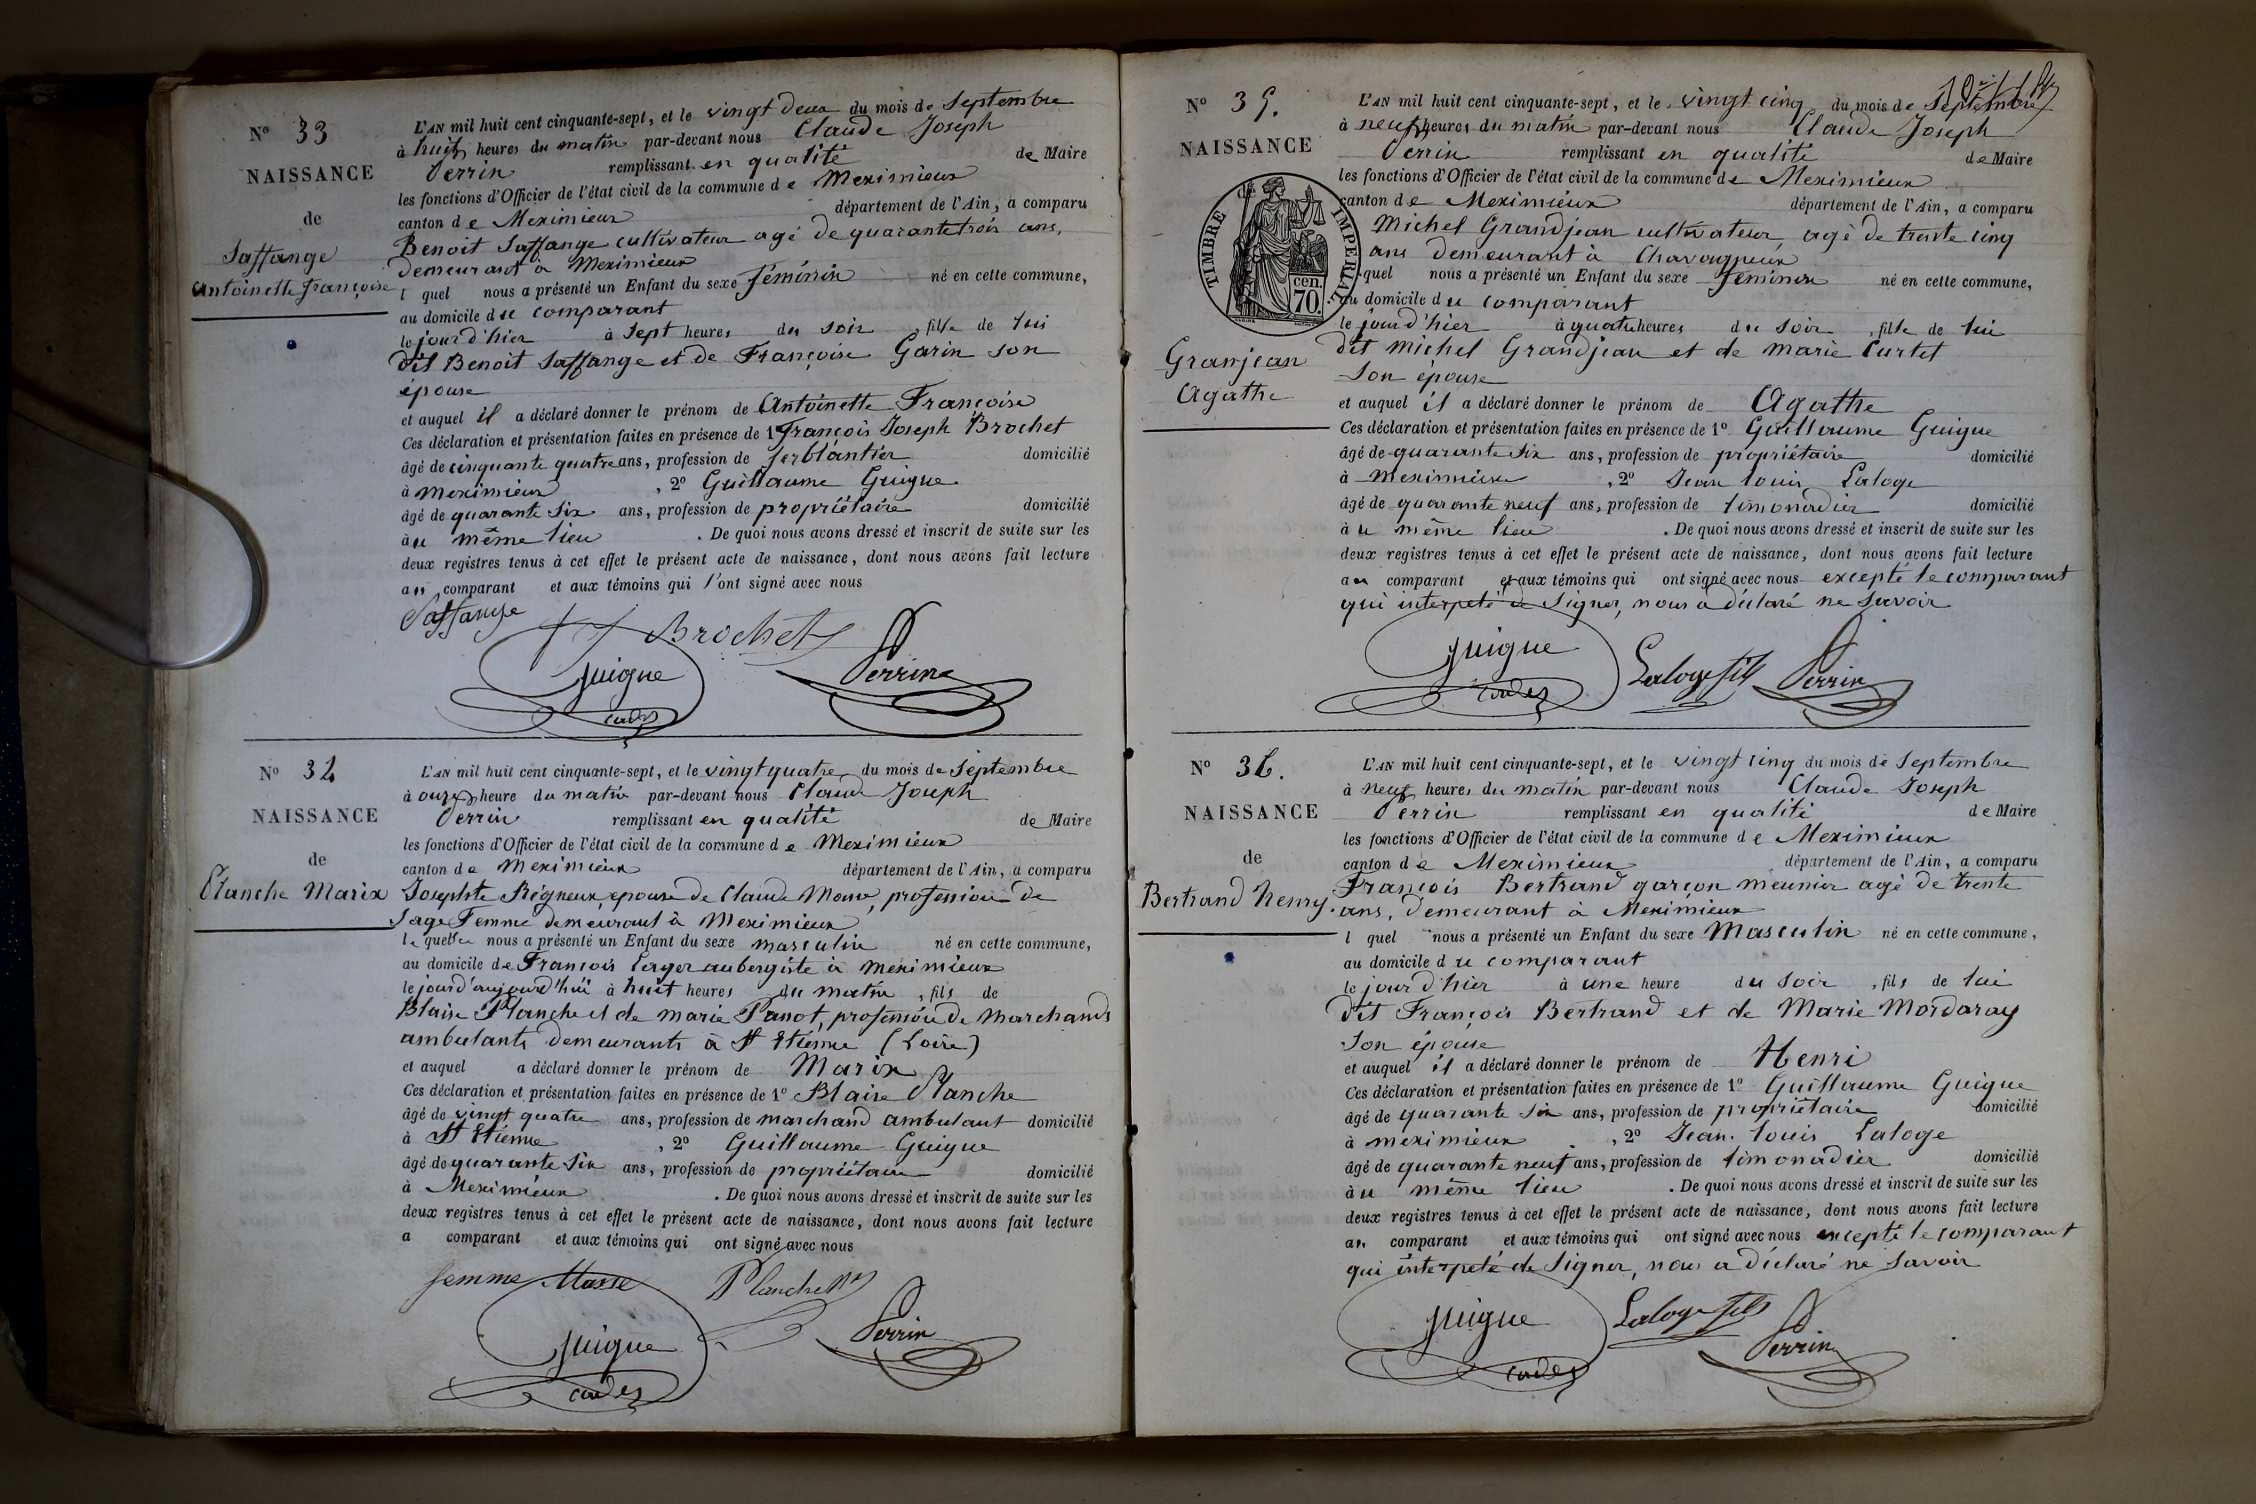 N° 33
NAISSANCE
de
Saffange
Antoinette Françoise
L'AN mil huit cent cinquante-sept, et le vingt deux du mois de Septembre
à huit heures du matin par-devant nous Claude Joseph
Perrin remplissant en qualité de Maire
les fonctions d'Officier de l'état civil de la commune de Meximieux
canton de Meximieux département de l'Ain, a comparu
Benoit Saffange cultivateur agé de quarante trois ans,
demeurant à Meximieux
l quel nous a présenté un Enfant du sexe féminin né en cette commune,
au domicile du comparant
le jour d'hier à Sept heures du soir, fille de lui
dit Benoit Saffange et de Françoise Garin son
épouse
et auquel il a déclaré donner le prénom de Antoinette Françoise
Ces déclaration et présentation faites en présence de 1° François Joseph Brochet
âgé de cinquante quatre ans, profession de ferblantier domicilié
à Meximieux, 2° Guillaume Guigue
âgé de quarante six ans, profession de propriétaire domicilié
au même lieu. De quoi nous avons dressé et inscrit de suite sur les
deux registres tenus à cet effet le présent acte de naissance, dont nous avons fait lecture
au comparant et aux témoins qui l'ont signé avec nous
Saffange
Brochet
Guigue
Perrin
N° 34
NAISSANCE
de
Planche Marix
L'AN mil huit cent cinquante-sept, et le vingt quatre du mois de Septembre
à onze heure du matin par-devant nous Claude Joseph
Perrin remplissant en qualité de Maire
les fonctions d'Officier de l'état civil de la commune de Meximieux
canton de Meximieux département de l'Ain, a comparu
Josephte épouse de Claude profession de
Sage Femme demeurant à Meximieux
le quelle nous a présenté un Enfant du sexe masculin né en cette commune,
au domicile de François Layer aubergiste à Meximieux
le jour d'aujourd'hui à huit heures du matin, fils de
Blaise Planche et de marie Panot, profession de Marchands
ambulants demeurants à St Etienne (Loire)
et auquel a déclaré donner le prénom de Marix
Ces déclaration et présentation faites en présence de 1° Blaise Planche
âgé de vingt quatre ans, profession de marchand ambulant domicilié
à St Etienne, 2° Guillaume Guigue
âgé de quarante six ans, profession de propriétaire domicilié
à Meximieux. De quoi nous avons dressé et inscrit de suite sur les
deux registres tenus à cet effet le présent acte de naissance, dont nous avons fait lecture
a comparant et aux témoins qui ont signé avec nous
femme
Planche
Guigue
Perrin
N° 35.
NAISSANCE
TIMBRE IMPERIAL
cen.
70.
Granjean
Agathe
L'AN mil huit cent cinquante-sept, et le vingt cinq du mois de Septembre
à neuf heures du matin par-devant nous Claude Joseph
Perrin remplissant en qualité de Maire
les fonctions d'Officier de l'état civil de la commune de Meximieux
canton de Meximieux département de l'Ain, a comparu
Michel Grandjean cultivateur, agé de trente cinq
ans demeurant à Chavagneux
quel nous a présenté un Enfant du sexe féminin né en cette commune,
au domicile du comparant
le jour d'hier à quatre heures du soir, fille de lui
dit Michel Grandjean et de Marie Curtet
son épouse
et auquel il a déclaré donner le prénom de Agathe
Ces déclaration et présentation faites en présence de 1° Guillaume Guigue
âgé de quarante six ans, profession de propriétaire domicilié
à Meximieux, 2° Jean Louis Laloge
âgé de quarante neuf ans, profession de limonadier domicilié
au même lieu. De quoi nous avons dressé et inscrit de suite sur les
deux registres tenus à cet effet le présent acte de naissance, dont nous avons fait lecture
au comparant et aux témoins qui ont signé avec nous excepté le comparant
qui interpelé de signer, nous a déclaré ne savoir
Guigue
Laloge fils
Perrin
N° 36.
NAISSANCE
de
Bertrand Henry.
L'AN mil huit cent cinquante-sept, et le vingt cinq du mois de Septembre
à neuf heures du matin par-devant nous Claude Joseph
Perrin remplissant en qualité de Maire
les fonctions d'Officier de l'état civil de la commune de Meximieux
canton de Meximieux département de l'Ain, a comparu
François Bertrand garçon meunier agé de trente
ans, demeurant à Meximieux
l quel nous a présenté un Enfant du sexe Masculin né en cette commune,
au domicile du comparant
le jour d'hier à une heure du soir, fils de lui
dit François Bertrand et de Marie Mordaray
son épouse
et auquel il a déclaré donner le prénom de Henri
Ces déclaration et présentation faites en présence de 1° Guillaume Guigue
âgé de quarante six ans, profession de propriétaire domicilié
à meximieux, 2° Jean Louis Laloge
âgé de quarante neuf ans, profession de limonadier domicilié
au même lieu. De quoi nous avons dressé et inscrit de suite sur les
deux registres tenus à cet effet le présent acte de naissance, dont nous avons fait lecture
au comparant et aux témoins qui ont signé avec nous excepté le comparant
qui interpelé de signer, nous a déclaré ne savoir
Guigue
Laloge fils
Perrin